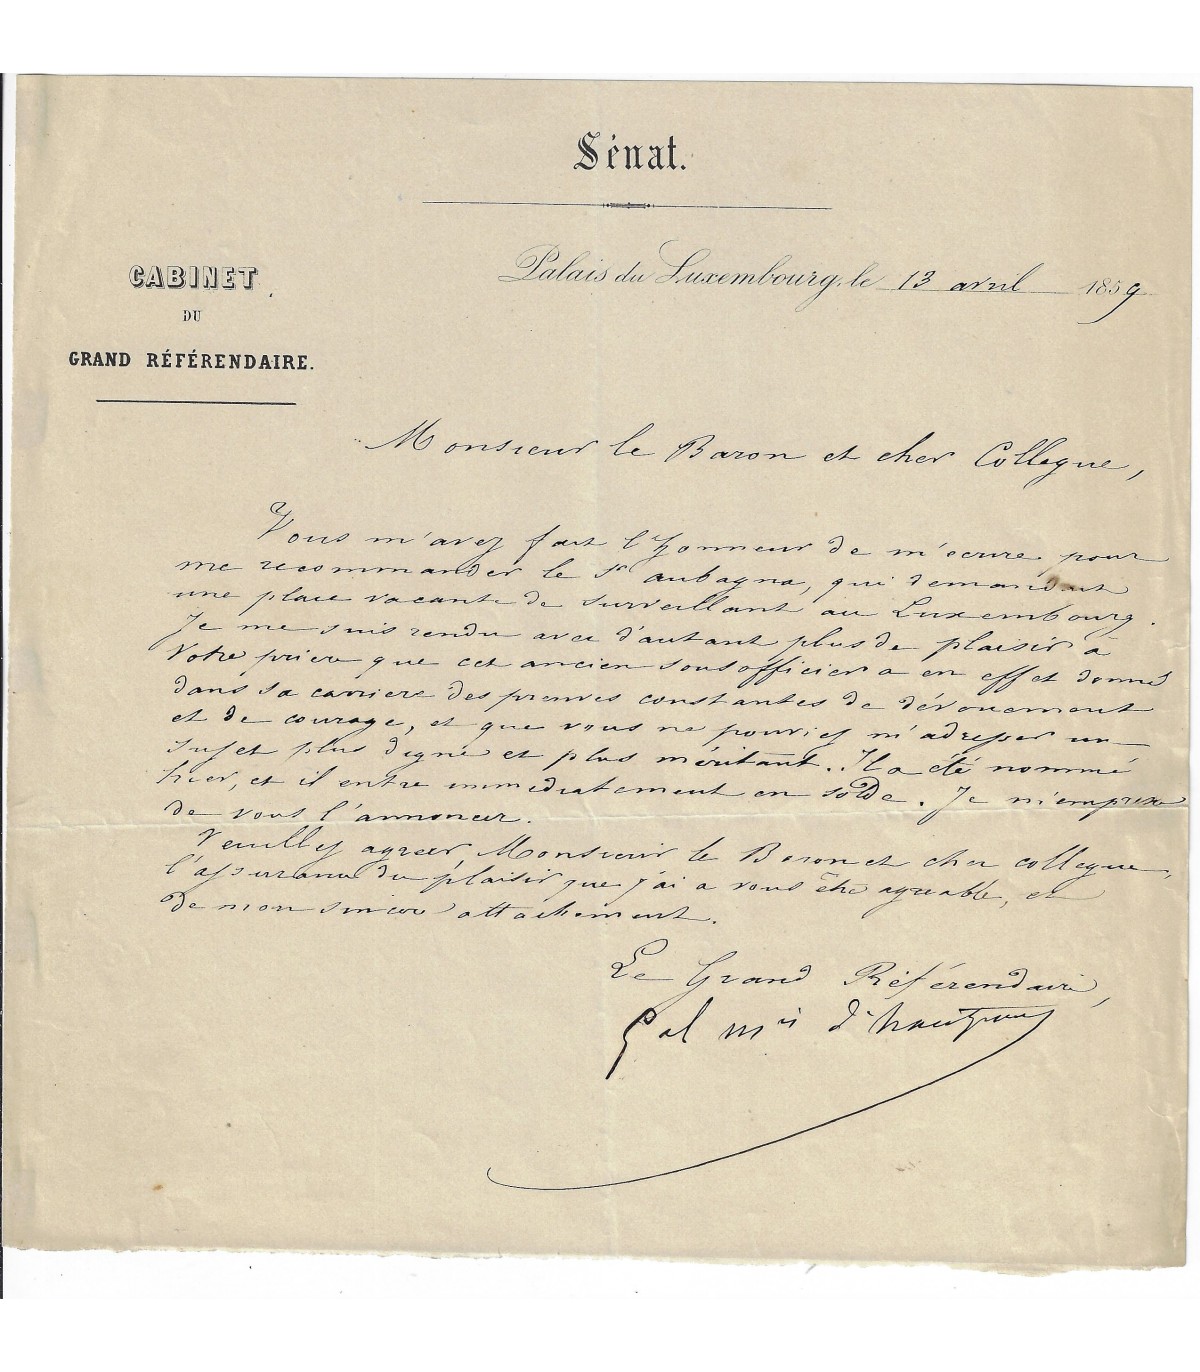 Sénat.
Palais du Luxembourg, le 13 avril 1859
CABINET
DU
GRAND RÉFÉRENDAIRE.
Monsieur le Baron et cher Collegue,
Vous m'avez fait l'honneur de m'ecrire pour
me recommander le Sr aubagna, qui demandait
une place vacante de surveillant au Luxembourg.
Je me suis rendu avec d'autant plus de plaisir à
Votre priere que cet ancien sous officier a en effet donné
dans sa carriere des preuves constantes de dévouement
et de courage, et que vous ne pouviez m'adresser un
sujet plus digne et plus méritant. Il a été nommé
hier, et il entre immediatement en solde. Je m'empresse
de vous l'annoncer.
Veuillez agreer, Monsieur le Baron et cher collegue,
l'assurance du plaisir que j'ai a vous être agreable, et
de mon sincere attachement.
Le Grand Référendaire,
Gal mis d'hautpoul